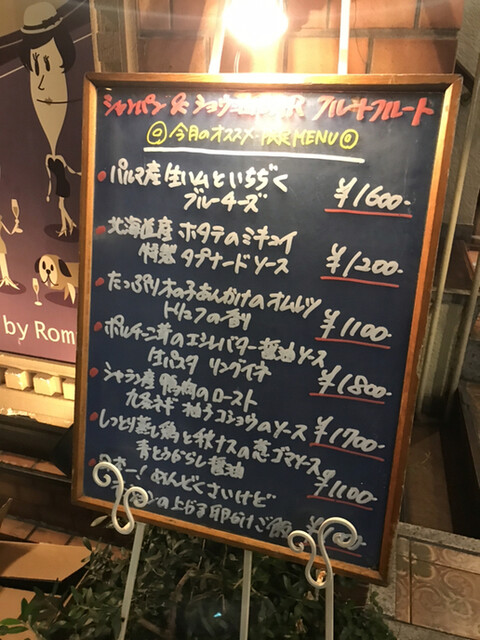 シャンパン &
フルートフルート
◎今月のオススメ MENU◎
・パルマ産生ハムといちぢく
ブルーチーズ ¥1600-
・北海道産 ホタテのミキュイ
特製 タプナードソース ¥1200-
・たっぷり木の子あんかけのオムレツ
トリュフの香り ¥1100-
・ポルチーニ茸のエシレバター醤油ソース
生パスタ リングイネ ¥1800-
・シャラン産 鴨肉のロースト
九条ネギ 柚子コショウのソース ¥1700-
・しっとり蒸し鶏と秋ナスの葱ゴマソース
青とうがらし醤油 ¥1100-
めんどくさいけど
の上がる卵かけご飯
by Rom